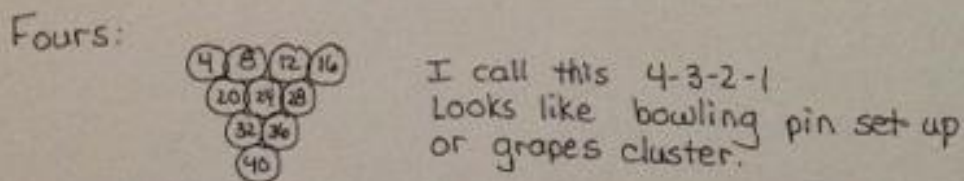 Fours:
4 8 12 16
20 24 28
32 36
40
I call this 4-3-2-1
Looks like bowling pin set up
or grapes cluster.